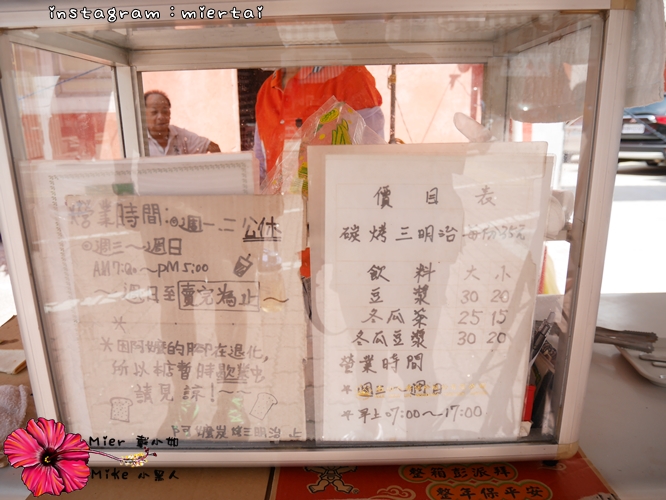 instagram：miertai
營業時間：◎週一、二公休
◎週三～週日
AM7:00～PM5:00
～週日至賣完為止～
＊
＊因阿嬤的腳在退化，
所以本店暫時歇
請見諒！～
碳烤三明治
價目表
碳烤三明治 每份35元
飲料 大 小
豆漿 30 20
冬瓜茶 25 15
冬瓜豆漿 30 20
營業時間
＊週三～週日
＊早上07:00～17:00
Mier 彭小如
Mike
整年保平安